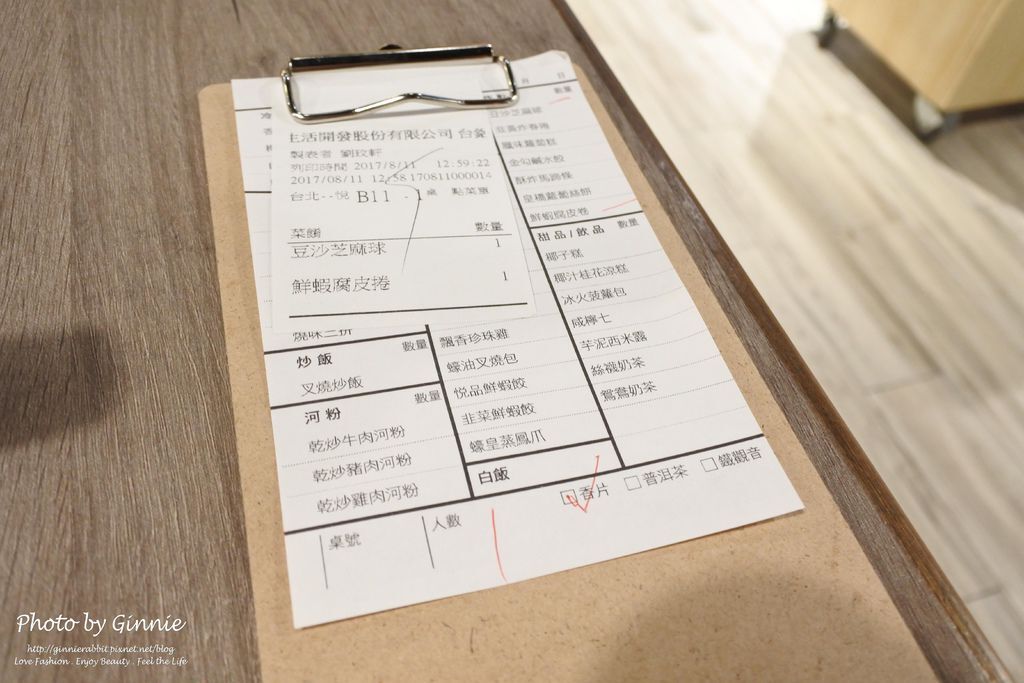 生活開發股份有限公司 台
製表者 劉玟軒
列印時間 2017/8/11 12:59:22
2017/08/11 12:58 170811000014
台北--悅 B11 - 1桌 點菜單
菜餚 數量
豆沙芝麻球 1
鮮蝦腐皮捲 1
燒味三拼
炒飯 數量
叉燒炒飯
河粉 數量
乾炒牛肉河粉
乾炒豬肉河粉
乾炒雞肉河粉
飄香珍珠雞
蠔油叉燒包
悅品鮮蝦餃
韭菜鮮蝦餃
蠔皇蒸鳳爪
白飯
月 日
數量
豆沙芝麻球
臘味蘿蔔糕
金勾鹹水餃
酥炸馬蹄條
皇橋蘿蔔絲餅
鮮蝦腐皮卷
甜品/飲品 數量
椰子糕
椰汁桂花涼糕
冰火菠蘿包
咸檸七
芋泥西米露
絲襪奶茶
鴛鴦奶茶
香片 普洱茶 鐵觀音
桌號 人數
Photo by Ginnie
http://ginnierabbit.pixnet.net/blog
Love Fashion . Enjoy Beauty . Feel the Life